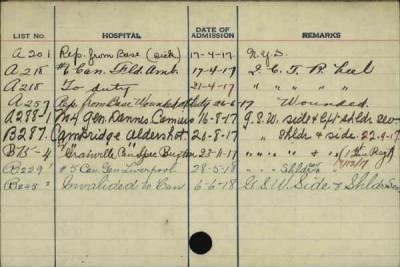 LIST NO. HOSPITAL DATE OF ADMISSION REMARKS
A 201 Rep. from Base (sick) 17-4-17 N.Y.D.
A 218 #6 Can. Fld. Amb. 17-4-17 I.C.T. R. heel
A 218 To duty 21-4-17 " " " "
A 257 Rep. from Base Wounded 26-6-17 Wounded.
A 288-1 Gen. Dannes Camiers 16-8-17 G.S.W. side & shldr sev
B287. Cambridge Aldershot 20-8-17 " Shldr & side. 22-9-17
B75-4 "Granville" Can Spec Buxton 23-11-17 " " " "
B229 #5 Can. Gen. Liverpool 28-5-18 " " Shldr
B245 Invalided to Can 6-6-18 G.S.W Side & Shldr Sev